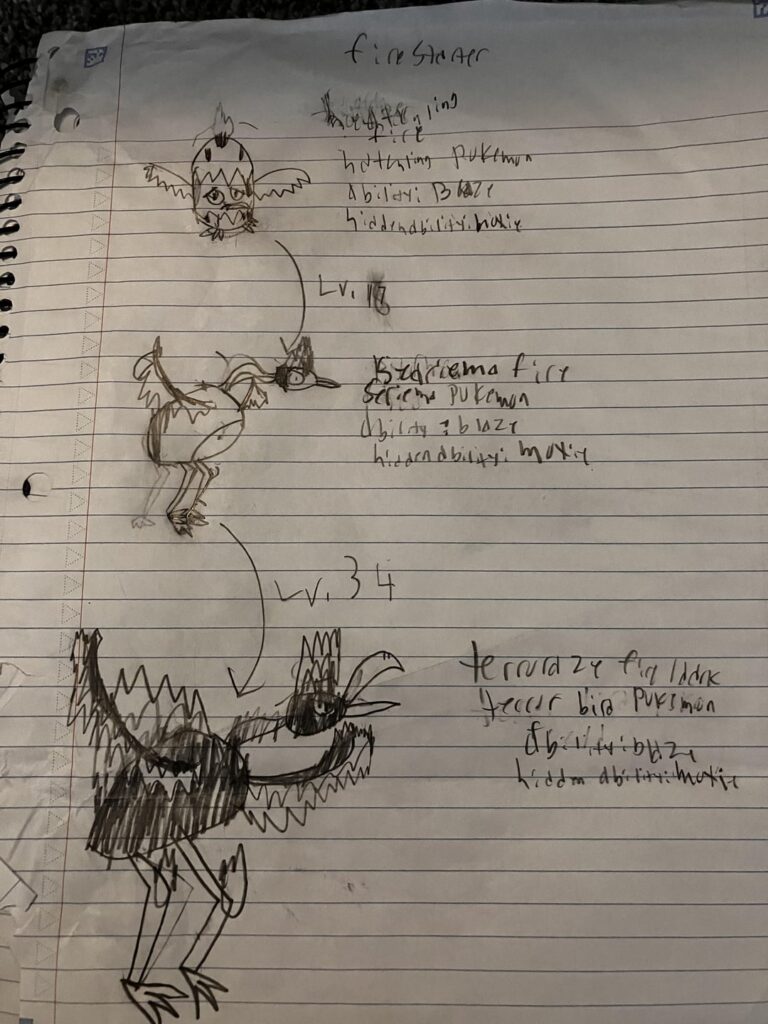 fire starter
fire
hatchling pukemon
ability: Blaze
hidden ability: moxie
Lv. 18
fire
seriema pukemon
ability: blaze
hidden ability: moxie
Lv. 34
terroraze fire/dark
terror bird pukemon
ability: blaze
hidden ability: moxie